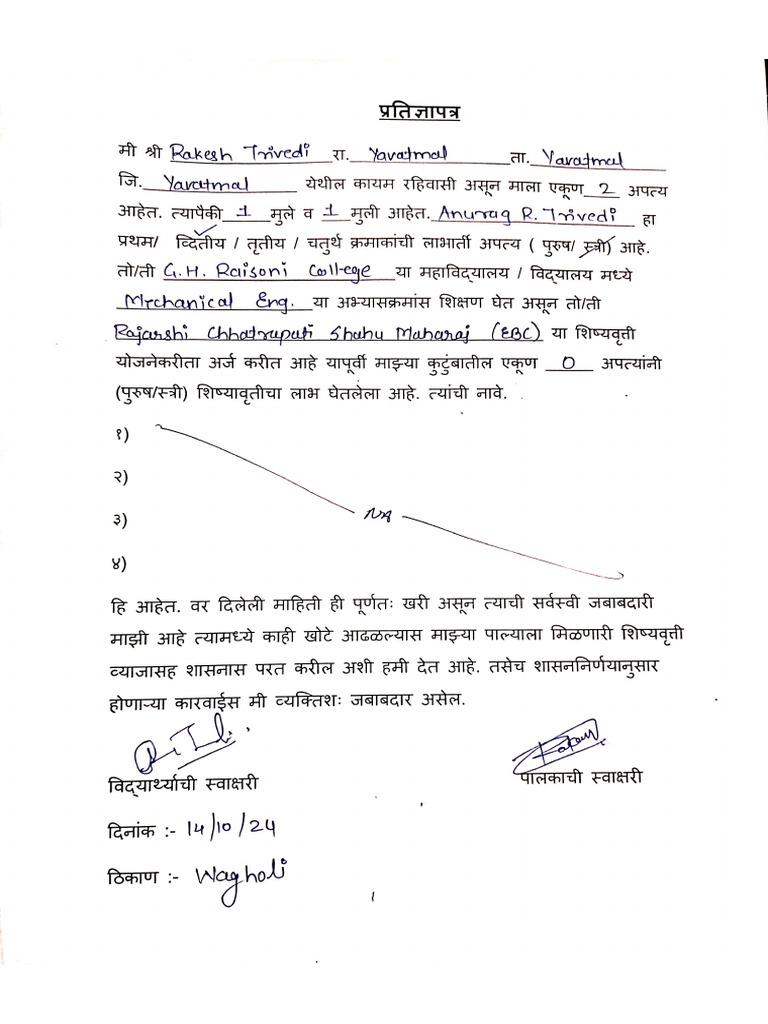 प्रतिज्ञापत्र
मी श्री Rakesh Trivedi रा. Yavatmal ता. Yavatmal
जि. Yavatmal येथील कायम रहिवासी असून माला एकूण 2 अपत्य
आहेत. त्यापैकी 1 मुले व 1 मुली आहेत. Anurag R. Trivedi हा
प्रथम/ व्दितीय / तृतीय / चतुर्थ क्रमाकांची लाभार्ती अपत्य ( पुरुष/ स्त्री) आहे.
तो/ती G.H. Raisoni College या महाविद्यालय / विद्यालय मध्ये
Mechanical Eng. या अभ्यासक्रमांस शिक्षण घेत असून तो/ती
Rajarshi Chhatrapati Shahu Maharaj (EBC) या शिष्यवृत्ती
योजनेकरीता अर्ज करीत आहे यापूर्वी माझ्या कुटुंबातील एकूण 0 अपत्यांनी
(पुरुष/स्त्री) शिष्यावृतीचा लाभ घेतलेला आहे. त्यांची नावे.
१)
२)
३)
४)
हि आहेत. वर दिलेली माहिती ही पूर्णतः खरी असून त्याची सर्वस्वी जबाबदारी
माझी आहे त्यामध्ये काही खोटे आढळल्यास माझ्या पाल्याला मिळणारी शिष्यवृत्ती
व्याजासह शासनास परत करील अशी हमी देत आहे. तसेच शासननिर्णयानुसार
होणाऱ्या कारवाईस मी व्यक्तिशः जबाबदार असेल.
विद्यार्थ्याची स्वाक्षरी पालकाची स्वाक्षरी
दिनांक :- 14/10/24
ठिकाण :- Wagholi